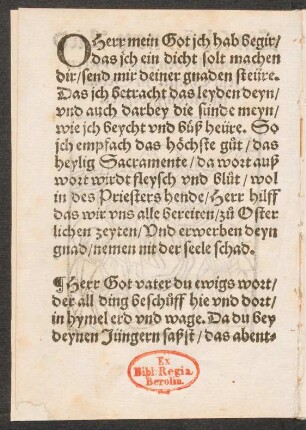 O Herr mein Got jch hab begir/
das jch ein dicht solt machen
dir/send mir deiner gnaden steüre.
Das jch betracht das leyden deyn/
vnd auch darbey die sünde meyn/
wie jch beycht vnd büß heüre. So
jch empfach das höchste güt/das
heylig Sacramente/da wort auß
wort wirdt fleysch vnd blüt/wol
in des Priesters hende/Herr hilff
das wir vns alle bereiten/zů Oster
lichen zeyten/Vnd erwerben deyn
gnad/nemen nit der seele schad.
¶Herr Got vater du ewigs wort/
der all ding beschüff hie vnd dort/
in hymel erd vnd wage. Da du bey
deynen Jüngern saßst/das abent-
Ex
Bibl. Regia
Berolin.